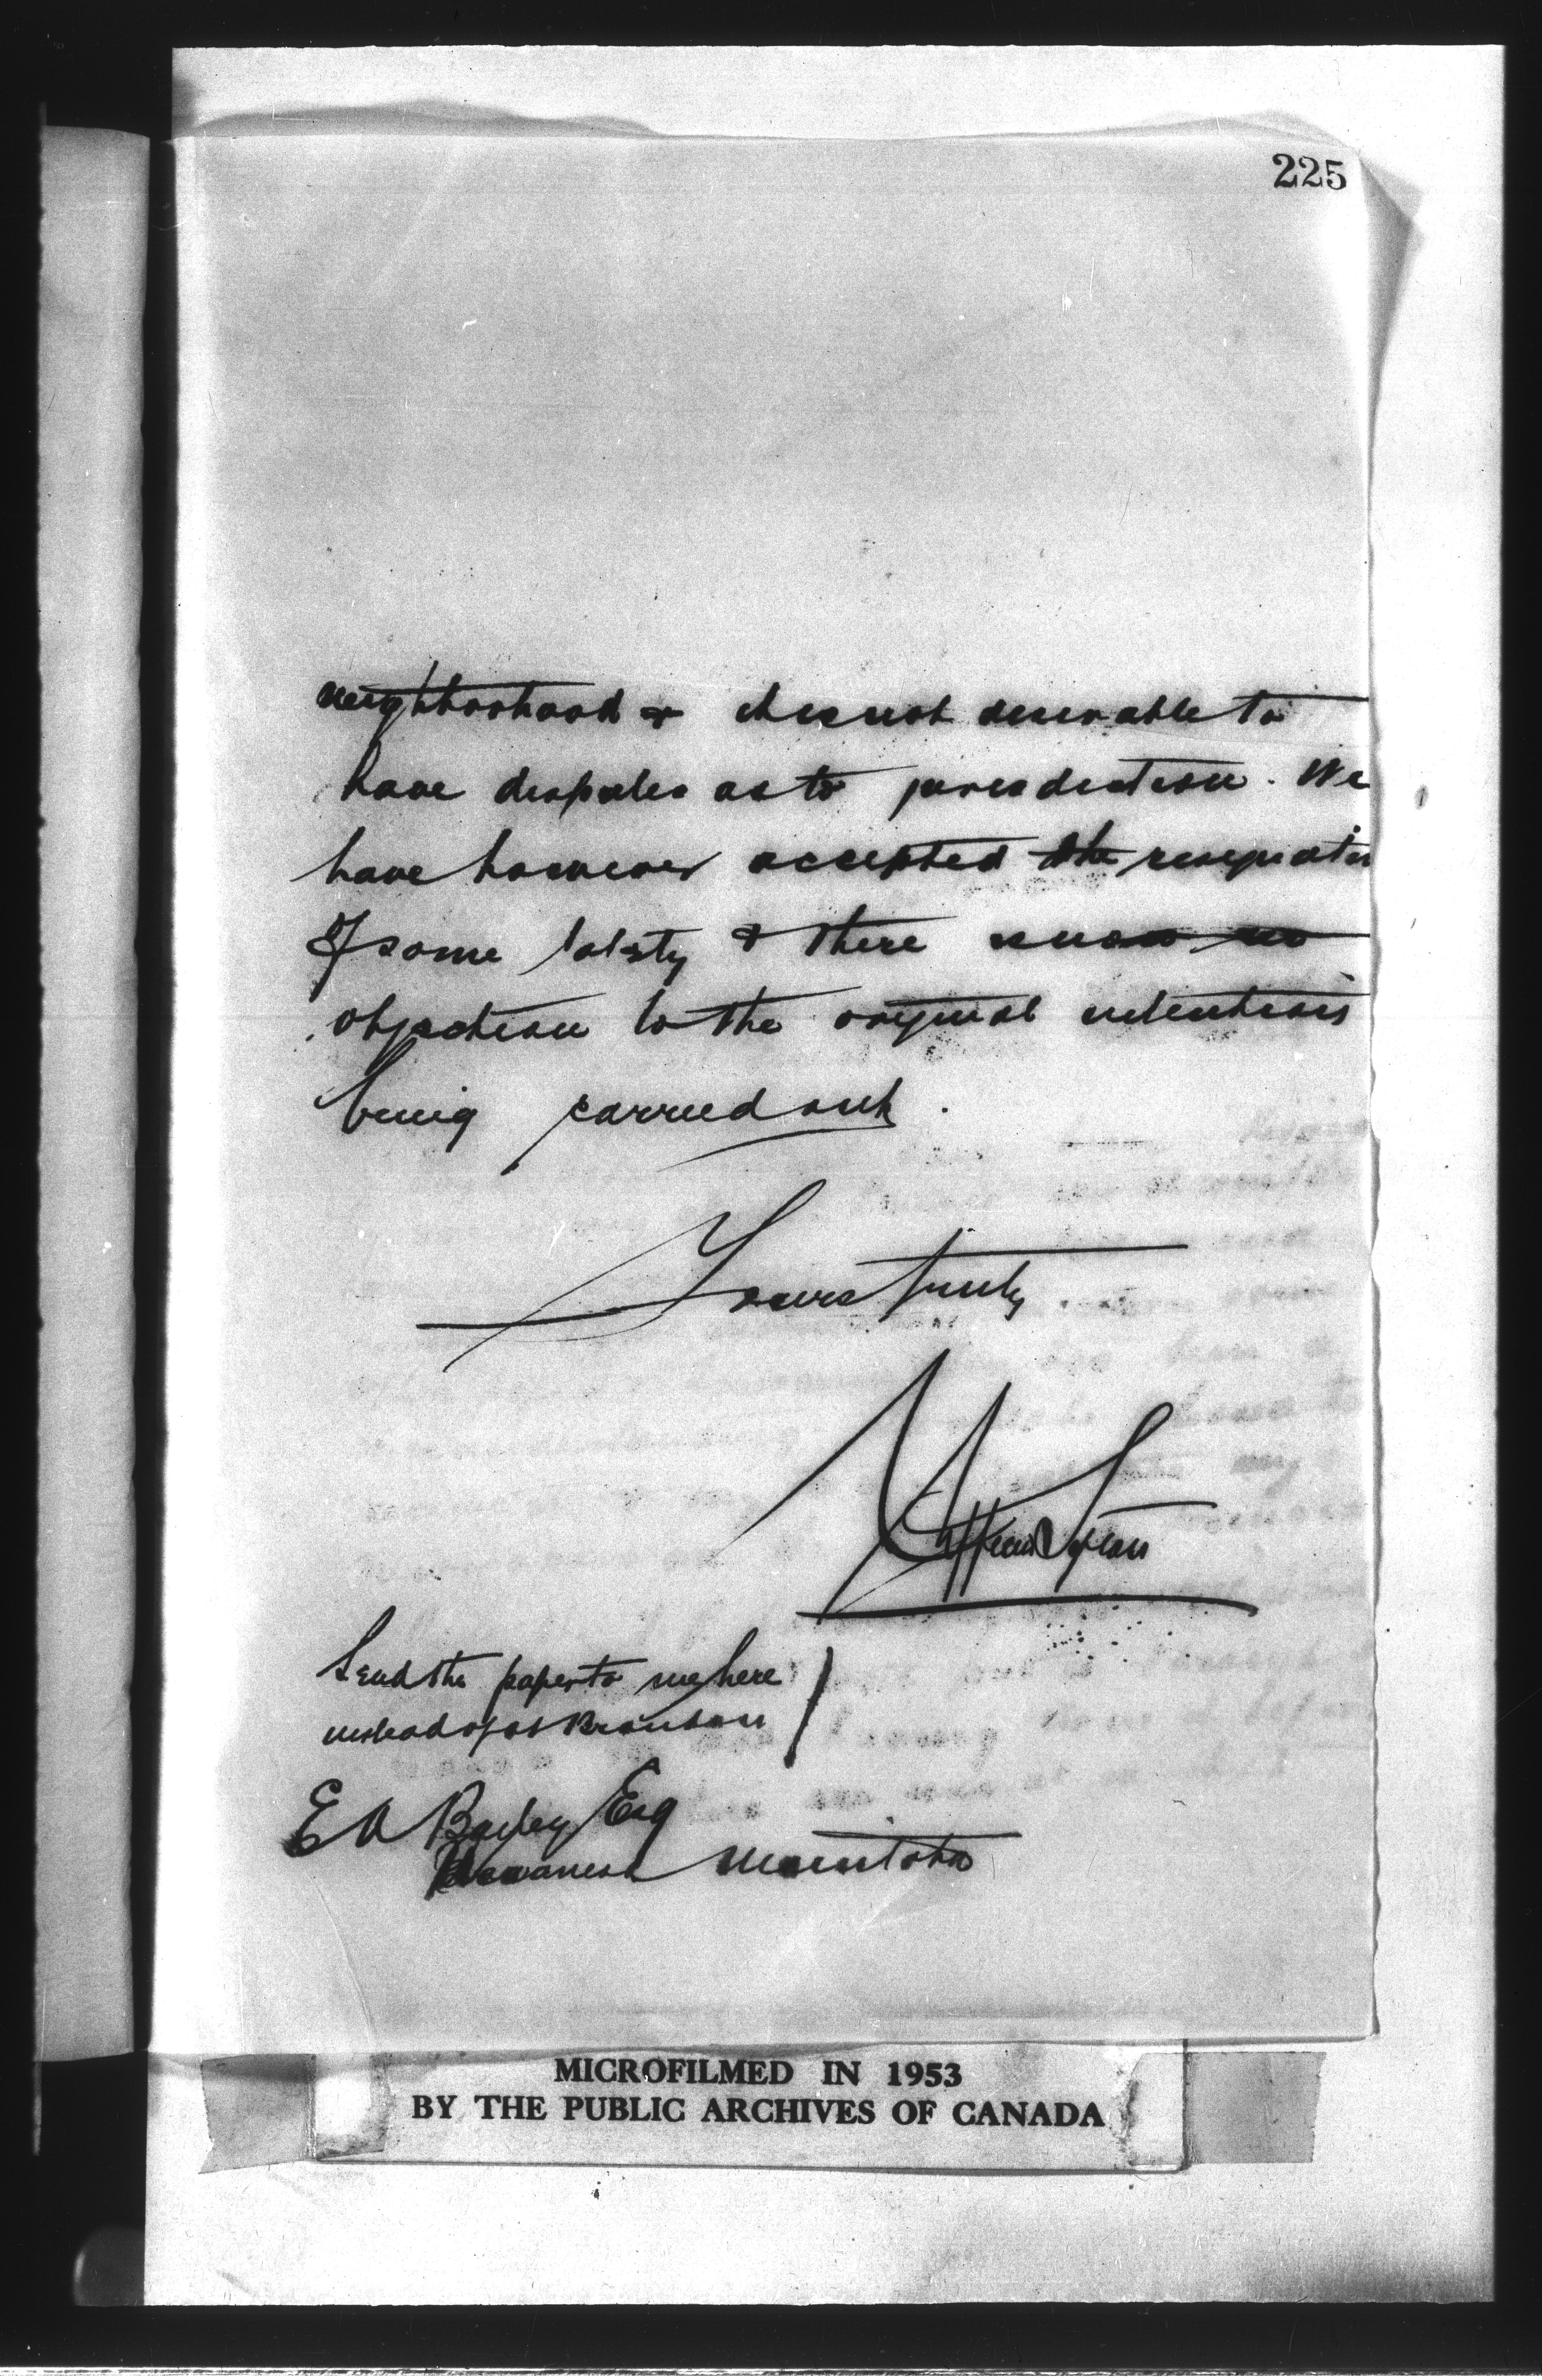 225
neighborhood & it is not desirable to
have disputes as to jurisdiction. We
have however accepted the resignation
of some lately & there
objection to the original intentions
being carried out.
Yours truly
Send the papers to me here
instead of at Brandon
E A Bailey Esq
Wawanesa Manitoba
MICROFILMED IN 1953
BY THE PUBLIC ARCHIVES OF CANADA